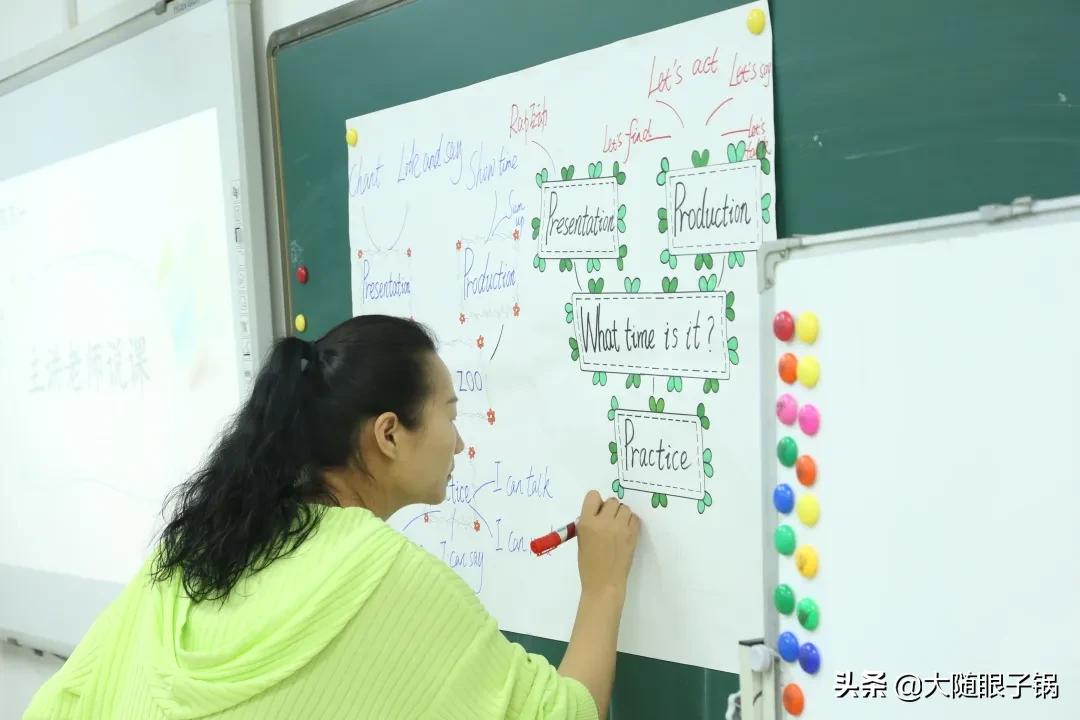 Let's act
Let's say
Let's find
Let's
Chant
Look and say
Show time
Sum
up
Presentation
Production
Presentation
Production
What time is it?
ZOO
Practice
tice
I can talk
I can
I can say
主讲老师说课
头条 @大随眼子锅